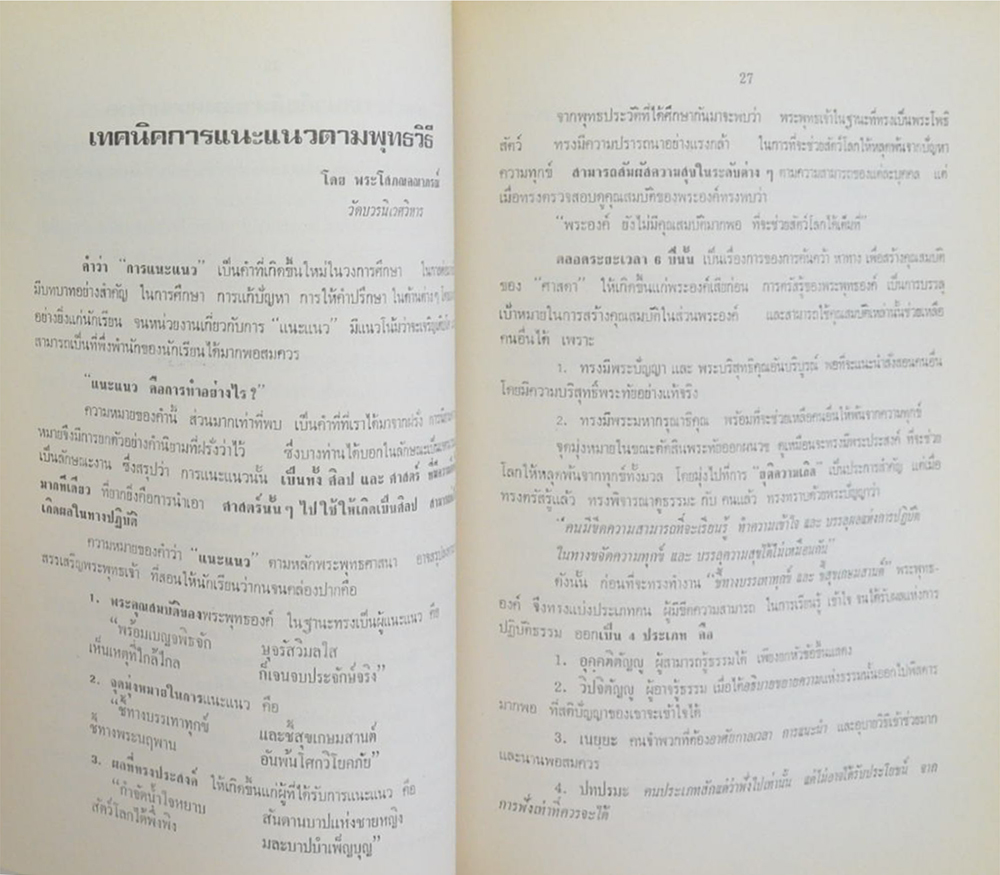 เทคนิคการแนะแนวตามพุทธวิธี
โดย พระโสภณคณาภรณ์
วัดบวรนิเวศวิหาร
คำว่า "การแนะแนว" เป็นคำที่เกิดขึ้นใหม่ในวงการศึกษา
มีบทบาทอย่างสำคัญ ในการศึกษา การแก้ปัญหา การให้คำปรึกษา ในด้านต่างๆ
อย่างยิ่งแก่นักเรียน จนหน่วยงานเกี่ยวกับการ "แนะแนว" มีแนวโน้มว่าจะเจริญ
สามารถเป็นที่พึ่งพำนักของนักเรียนได้มากพอสมควร
"แนะแนว คือการทำอย่างไร ?"
ความหมายของคำนี้ ส่วนมากเท่าที่พบ เป็นคำที่ที่เราได้มาจากฝรั่ง
หมายจึงมีการยกตัวอย่างคำนิยามที่ฝรั่งว่าไว้ ซึ่งบางท่านได้บอกในลักษณะเป็น
เป็นลักษณะงาน ซึ่งสรุปว่า การแนะแนวนั้น เป็นทั้ง ศิลป และ ศาสตร์ ที่มีความ
มากทีเดียว ที่ยากยิ่งคือการนำเอา ศาสตร์นั้น ๆ ไปใช้ให้เกิดเป็นศิลป
เกิดผลในทางปฏิบัติ
ความหมายของคำว่า "แนะแนว" ตามหลักพระพุทธศาสนา อาจสรุป
สรรเสริญพระพุทธเจ้า ที่สอนให้นักเรียนว่ากนจนคล่องปากคือ
1. พระคุณสมบัติของพระพุทธองค์ ในฐานะทรงเป็นผู้แนะแนว คือ
"พร้อมเบญจพิธจัก ษุจรัสวิมลใส
เห็นเหตุที่ใกล้ไกล ก็เจนจบประจักษ์จริง"
2. จุดมุ่งหมายในการแนะแนว คือ
"ชี้ทางบรรเทาทุกข์ และชี้สุขเกษมสานต์
ชี้ทางพระนฤพาน อันพ้นโศกวิโยคภัย"
3. ผลที่ทรงประสงค์ ให้เกิดขึ้นแก่ผู้ที่ได้รับการแนะแนว คือ
"กำจัดน้ำใจหยาบ สันดานบาปแห่งชายหญิง
สัตว์โลกได้พึ่งพิง มละบาปบำเพ็ญบุญ"
27
จากพุทธประวัติที่ได้ศึกษากันมาจะพบว่า พระพุทธเจ้าในฐานะที่ทรงเป็นพระโพธิ
สัตว์ ทรงมีความปรารถนาอย่างแรงกล้า ในการที่จะช่วยสัตว์โลกให้หลุดพ้นจากปัญหา
ความทุกข์ สามารถสัมผัสความสุขในระดับต่าง ๆ ตามความสามารถของแต่ละบุคคล แต่
เมื่อทรงตรวจสอบดูคุณสมบัติของพระองค์ทรงพบว่า
"พระองค์ ยังไม่มีคุณสมบัติมากพอ ที่จะช่วยสัตว์โลกได้เต็มที่"
ตลอดระยะเวลา 6 ปีนั้น เป็นเรื่องการของการค้นคว้า หาทาง เพื่อสร้างคุณสมบัติ
ของ "ศาสดา" ให้เกิดขึ้นแก่พระองค์เสียก่อน การตรัสรู้ของพระพุทธองค์ เป็นการบรรลุ
เป้าหมายในการสร้างคุณสมบัติในส่วนพระองค์ และสามารถใช้คุณสมบัติเหล่านั้นช่วยเหลือ
คนอื่นได้ เพราะ
1. ทรงมีพระปัญญา และ พระบริสุทธิคุณอันบริบูรณ์ พอที่จะแนะนำสั่งสอนคนอื่น
โดยมีความบริสุทธิ์พระทัยอย่างแท้จริง
2. ทรงมีพระมหากรุณาธิคุณ พร้อมที่จะช่วยเหลือคนอื่นให้พ้นจากความทุกข์
จุดมุ่งหมายในขณะตัดสินพระทัยออกผนวช ดูเหมือนจะทรงมีพระประสงค์ ที่จะช่วย
โลกให้หลุดพ้นจากทุกข์ทั้งมวล โดยมุ่งไปที่การ "ยุติความเกิด" เป็นประการสำคัญ แต่เมื่อ
ทรงตรัสรู้แล้ว ทรงพิจารณาดูธรรมะ กับ คนแล้ว ทรงทราบด้วยพระปัญญาว่า
"คนมีขีดความสามารถที่จะเรียนรู้ ทำความเข้าใจ และ บรรลุผลแห่งการปฏิบัติ
ในทางขจัดความทุกข์ และ บรรลุความสุขได้ไม่เหมือนกัน"
ดังนั้น ก่อนที่จะทรงทำงาน "ชี้ทางบรรเทาทุกข์ และ ชี้สุขเกษมสานต์" พระพุทธ-
องค์ จึงทรงแบ่งประเภทคน ผู้มีขีดความสามารถ ในการเรียนรู้ เข้าใจ จนได้รับผลแห่งการ
ปฏิบัติธรรม ออกเป็น 4 ประเภท คือ
1. อุคคติตัญญู ผู้สามารถรู้ธรรมได้ เพียงยกหัวข้อขึ้นแสดง
2. วิปจิตัญญู ผู้อาจรู้ธรรม เมื่อได้อธิบายขยายความแห่งธรรมนั้นออกไปพิสดาร
มากพอ ที่สติปัญญาของเขาจะเข้าใจได้
3. เนยฺยะ คนจำพวกที่ต้องอาศัยกาลเวลา การแนะนำ และอุบายวิธีเข้าช่วยมาก
และนานพอสมควร
4. ปทปรมะ คนประเภทสักแต่ว่าฟังไปเท่านั้น แต่ไม่อาจได้รับประโยชน์ จาก
การฟังเท่าที่ควรจะได้